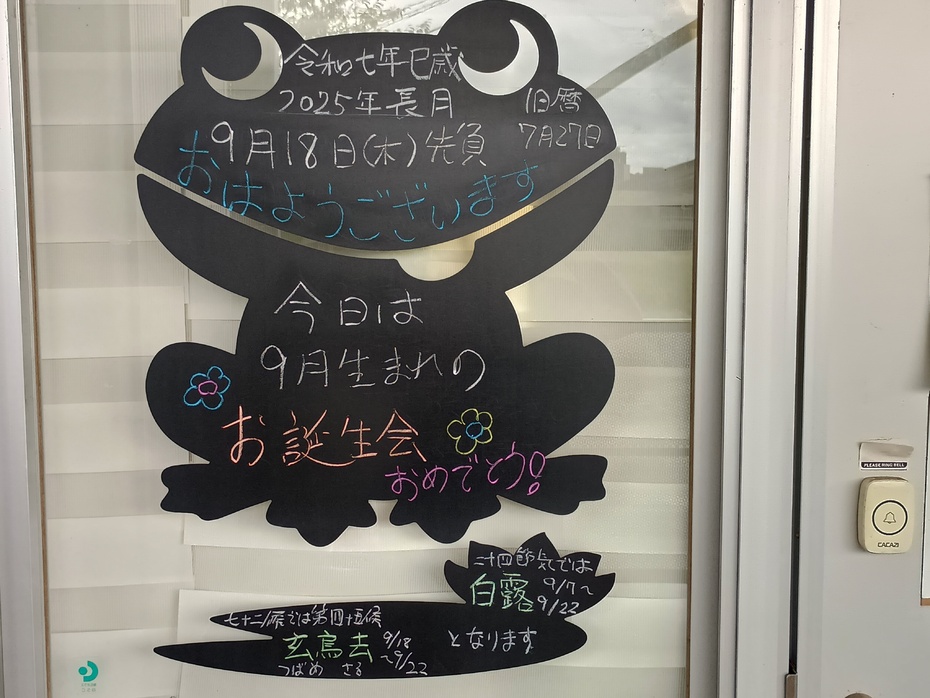 令和七年巳歳
2025年長月
旧暦
7月27日
9月18日(木)先負
おはようございます
今日は
9月生まれの
お誕生会
おめでとう!
二十四節気では
白露
9/7〜
9/22
七十二候では第四十五候
玄鳥去
9/18
〜9/22
つばめ さる
となります
PLEASE RING BELL
CACAZI